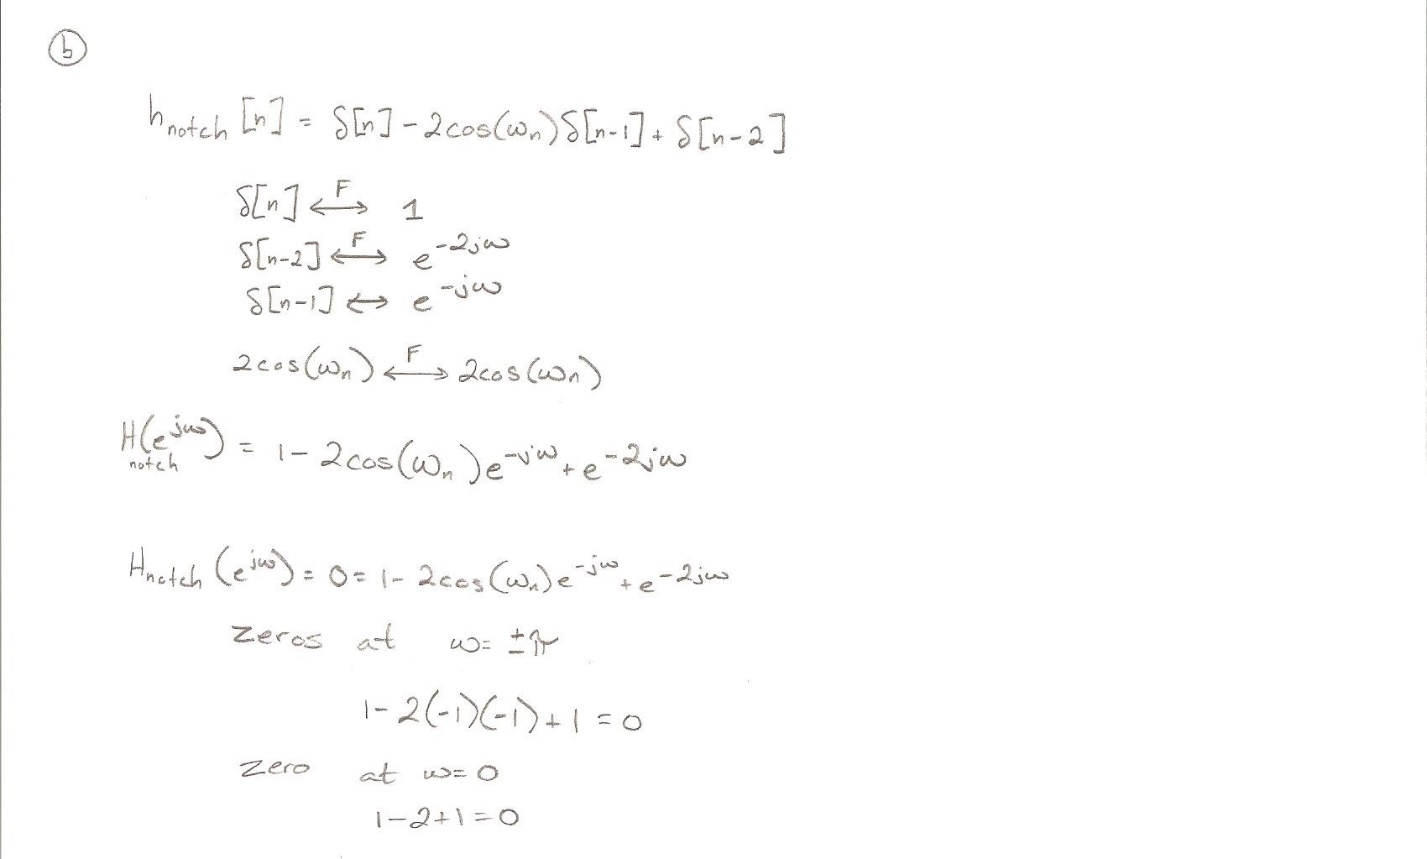 b
h_notch [n] = δ[n] - 2cos(ω_n)δ[n-1] + δ[n-2]
δ[n] ←F→ 1
δ[n-2] ←F→ e^{-2jω}
δ[n-1] ↔ e^{-jω}
2cos(ω_n) ←F→ 2cos(ω_n)
H_notch(e^{jω}) = 1 - 2cos(ω_n)e^{-jω} + e^{-2jω}
H_notch (e^{jω}) = 0 = 1 - 2cos(ω_n)e^{-jω} + e^{-2jω}
zeros at ω = ±π
1 - 2(-1)(-1) + 1 = 0
zero at ω = 0
1 - 2 + 1 = 0